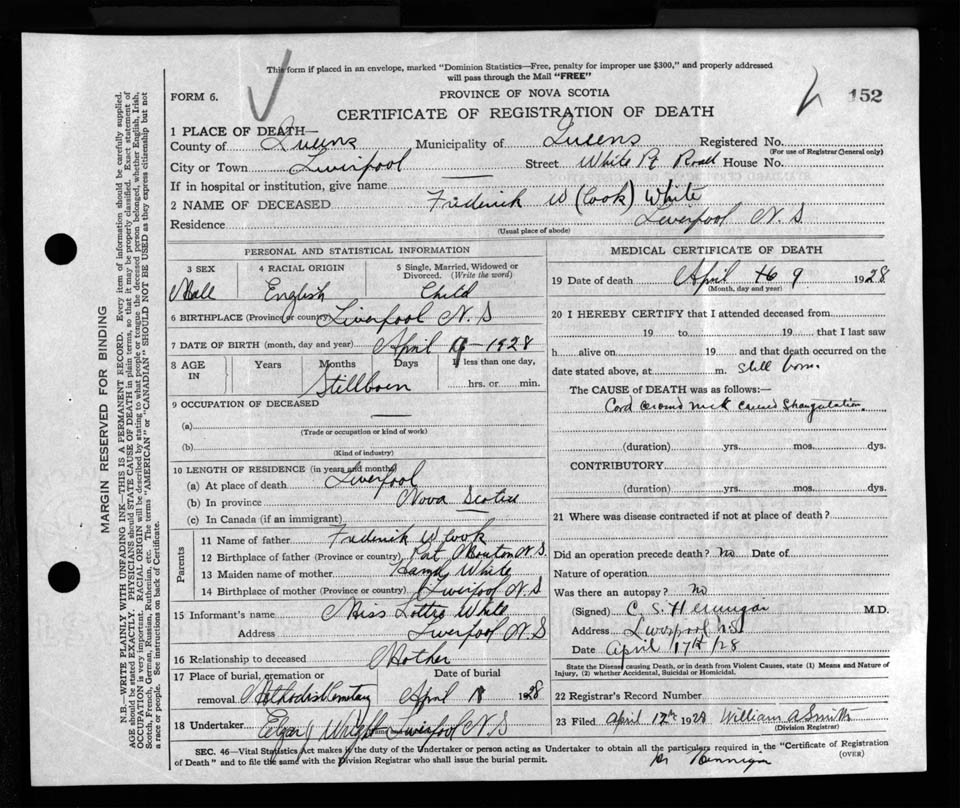 This form if placed in an envelope, marked "Dominion Statistics—Free, penalty for improper use $300," and properly addressed
will pass through the Mail "FREE"
FORM 6.
PROVINCE OF NOVA SCOTIA
152
CERTIFICATE OF REGISTRATION OF DEATH
1 PLACE OF DEATH—
County of Queens Municipality of Queens Registered No.
(For use of Registrar General only)
City or Town Liverpool Street White Pt Road House No.
If in hospital or institution, give name
2 NAME OF DECEASED Frederick W (Cook) White
Residence Liverpool N.S
(Usual place of abode)
PERSONAL AND STATISTICAL INFORMATION
3 SEX 4 RACIAL ORIGIN 5 Single, Married, Widowed or Divorced. (Write the word)
English Child
6 BIRTHPLACE (Province or country) Liverpool N.S
7 DATE OF BIRTH (month, day and year) April 9 - 1928
8 AGE IN Years Months Days If less than one day,
Stillborn hrs. or min.
9 OCCUPATION OF DECEASED
(a)
(Trade or occupation or kind of work)
(b)
(Kind of industry)
10 LENGTH OF RESIDENCE (in years and months)
(a) At place of death Liverpool
(b) In province Nova Scotia
(c) In Canada (if an immigrant)
Parents
11 Name of father Frederick W Cook
12 Birthplace of father (Province or country) Pat Mouton N.S
13 Maiden name of mother White
14 Birthplace of mother (Province or country) Liverpool N.S
15 Informant's name Miss Lottie White
Address Liverpool N.S
16 Relationship to deceased Mother
17 Place of burial, cremation or removal Methodist Cemetary
Date of burial April 1928
18 Undertaker Wright Liverpool N.S
MEDICAL CERTIFICATE OF DEATH
19 Date of death April 9 1928
(Month, day and year)
20 I HEREBY CERTIFY that I attended deceased from
19 to 19 that I last saw
h alive on 19 and that death occurred on the
date stated above, at m. Still born.
The CAUSE OF DEATH was as follows:—
Cord around neck caused Strangulation.
(duration) yrs. mos. dys.
CONTRIBUTORY
(duration) yrs. mos. dys.
21 Where was disease contracted if not at place of death?
Did an operation precede death? no Date of
Nature of operation
Was there an autopsy? no
(Signed) C. S. Hennigar M.D.
Address Liverpool N.S
Date April 17th/28
State the Disease causing Death, or in death from Violent Causes, state (1) Means and Nature of Injury, (2) whether Accidental, Suicidal or Homicidal.
22 Registrar's Record Number
23 Filed April 17th 1928 William A Smith
(Division Registrar)
SEC. 46—Vital Statistics Act makes it the duty of the Undertaker or person acting as Undertaker to obtain all the particulars required in the "Certificate of Registration
of Death" and to file the same with the Division Registrar who shall issue the burial permit.
(OVER)
Dr Hennigar
MARGIN RESERVED FOR BINDING
N.B.—WRITE PLAINLY WITH UNFADING INK—THIS IS A PERMANENT RECORD. Every item of information should be carefully supplied.
AGE should be stated EXACTLY. PHYSICIANS should STATE CAUSE OF DEATH in plain terms, so that it may be properly classified. Exact statement of
OCCUPATION is very important. RACIAL ORIGIN will be described by stating to what people or tongue the deceased person belonged, whether English, Irish,
Scotch, French, German, Russian, Ruthenian, etc. The terms "AMERICAN" or "CANADIAN" SHOULD NOT BE USED as they express citizenship but not
a race or people. See instructions on back of Certificate.